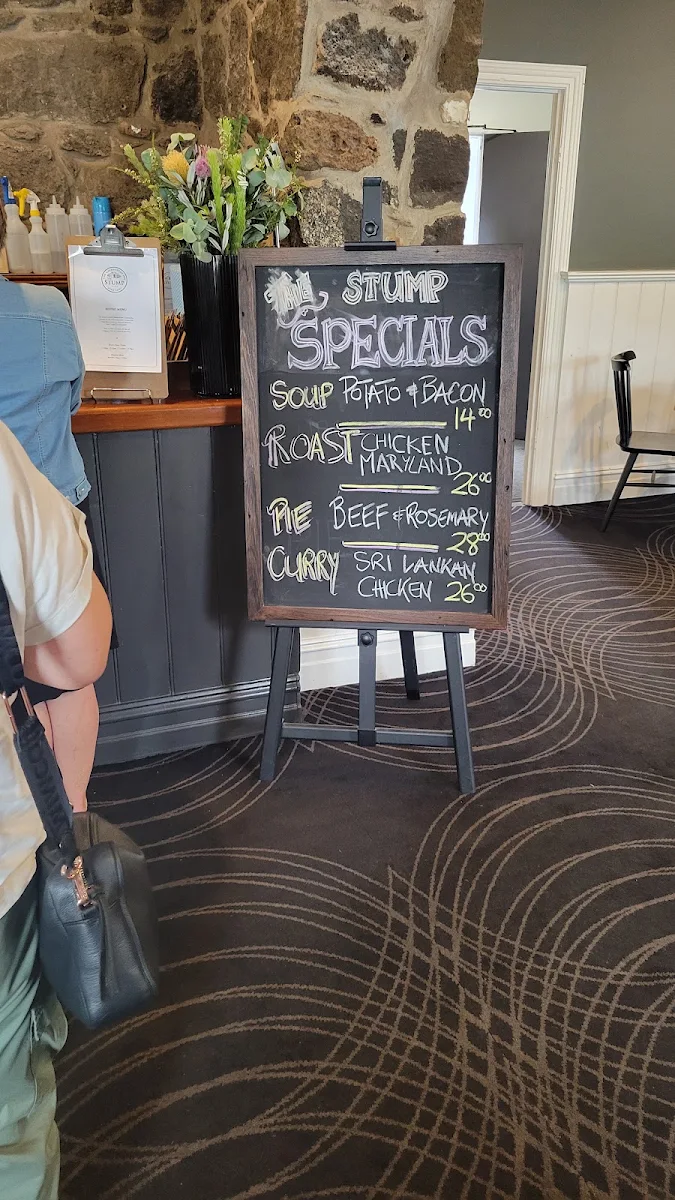 THE STUMP
SPECIALS
SOUP POTATO & BACON
14⁰⁰
ROAST CHICKEN
MARYLAND
26⁰⁰
PIE BEEF & ROSEMARY
28⁰⁰
CURRY SRI LANKAN
CHICKEN 26⁰⁰
STUMP